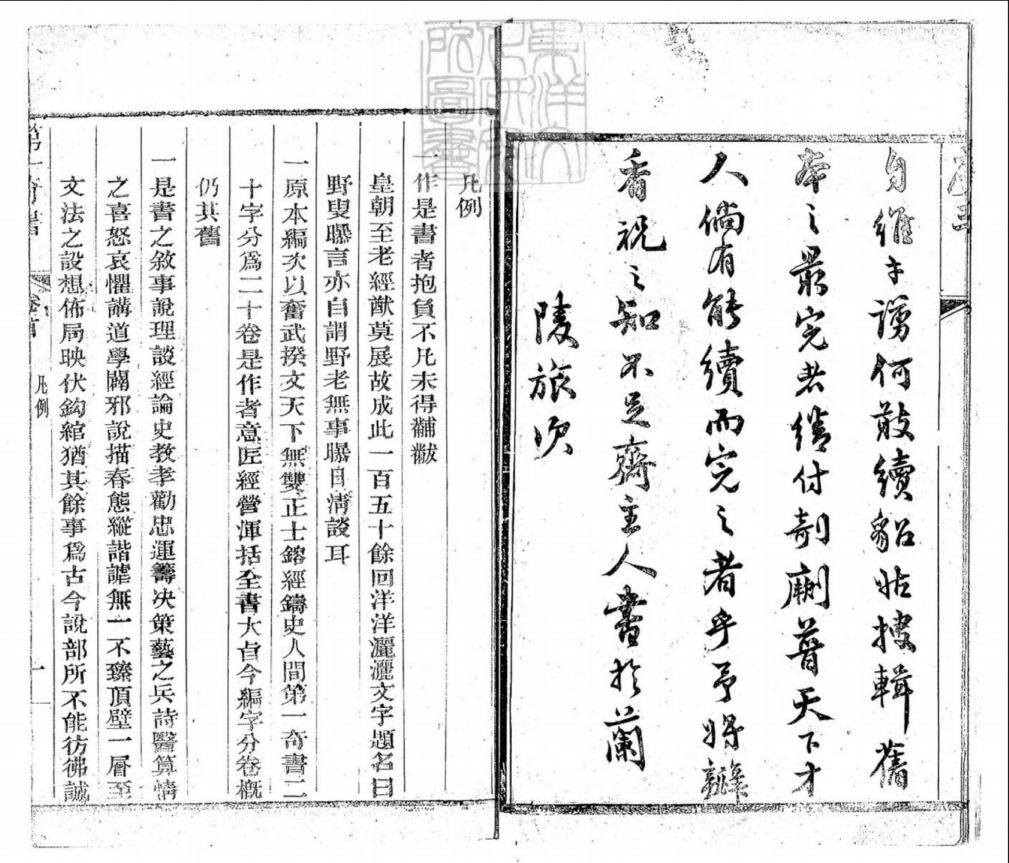 自維才譾何敢續貂姑搜輯舊
本之最完者繕付剞劂普天下才
人倘有能續而完之者乎予將瓣
香祝之知不足齋主人書於蘭
陵旅次
凡例
一作是書者抱負不凡未得黼黻
皇朝至老經猷莫展故成此一百五十餘回洋洋灑灑文字題名曰
野叟曝言亦自謂野老無事曝日清談耳
一原本編次以奮武揆文天下無雙正士鎔經鑄史人間第一奇書二
十字分爲二十卷是作者意匠經營渾括全書大旨今編字分卷概
仍其舊
一是書之敘事說理談經論史教孝勸忠運籌決策藝之兵詩醫算情
之喜怒哀懼講道學闢邪說描春態縱諧謔無一不臻頂壁一層至
文法之設想佈局映伏鈎綰猶其餘事爲古今說部所不能彷彿誠
第一奇書
卷首
凡例
一